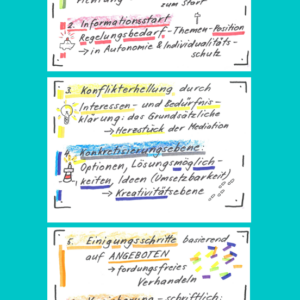 zum Start
2. Informationsstart
Regelungsbedarf - Themen - Position
→ in Autonomie & Individualitäts-
schutz
3. Konflikterhellung durch
Interessen- und Bedürfnis-
klärung: das Grundsätzliche
→ Herzstück der Mediation
4. Konkretisierungsebene:
Optionen, Lösungsmöglich-
keiten, Ideen (Umsetzbarkeit)
→ Kreativitätsebene
5. Einigungsschritte basierend
auf ANGEBOTEN
→ fordungsfreies
Verhandeln
schriftlich: